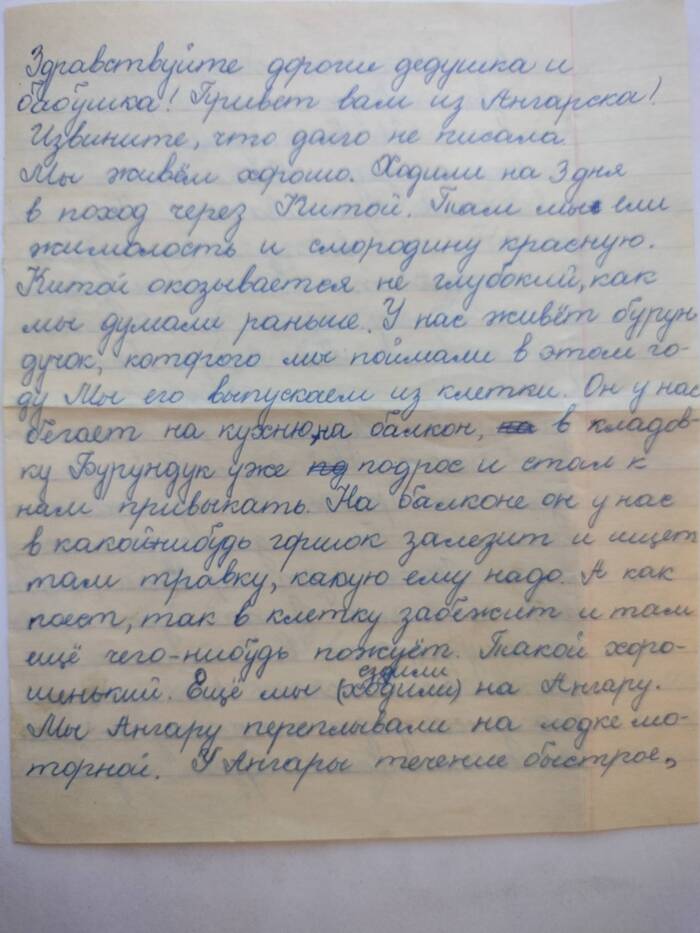 Здравствуйте дороги дедушка и
бабушка! Привет вам из Ангарска!
Извините, что долго не писала.
Мы живём хорошо. Ходили на 3 дня
в поход через Китой. Там мы ели
жимолость и смородину красную.
Китой окозывается не глубокий, как
мы думали раньше. У нас живёт бурун
дучок, которого мы поймали в этом го-
ду Мы его выпускаем из клетки. Он у нас
бегает на кухню, на балкон, в кладов-
ку Бурундук уже подрос и стал к
нам привыкать. На балконе он у нас
в какой-нибудь горшок залезит и ищет
там травку, какую ему надо. А как
поест, так в клетку забежит и там
ещё чего-нибудь пожуёт. Такой хоро-
шенький. Ещё мы (ходили) ездили на Ангару.
Мы Ангару переплывали на лодке мо-
торной. У Ангары течение быстрое,